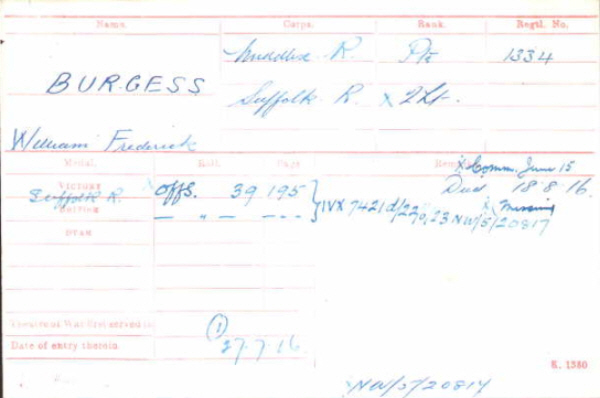 Name. Corps. Rank. Regtl. No.
Middlx. R. Pte 1334
BURGESS
Suffolk R. x 2Lt.
William Frederick
Medal. Roll. Page. x Comm. June 15
VICTORY x Offs. 39 195 Died 18.8.16.
Suffolk R. x Missing
BRITISH — " — — — IVX 7421d/220,23 NW/5/20817
STAR
Theatre of War first served in (1)
Date of entry therein 27.7.16.
K. 1380
NW/5/20817